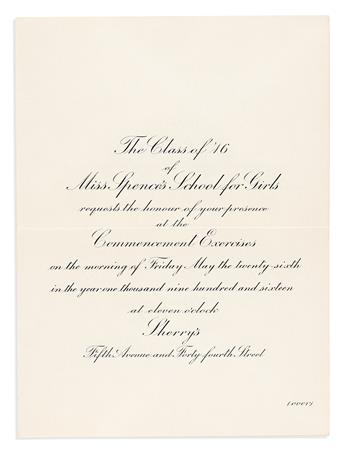 The Class of '16
of
Miss Spence's School for Girls
requests the honour of your presence
at the
Commencement Exercises
on the morning of Friday May the twenty-sixth
in the year one thousand nine hundred and sixteen
at eleven o'clock
Sherry's
Fifth Avenue and Forty-fourth Street
(over)